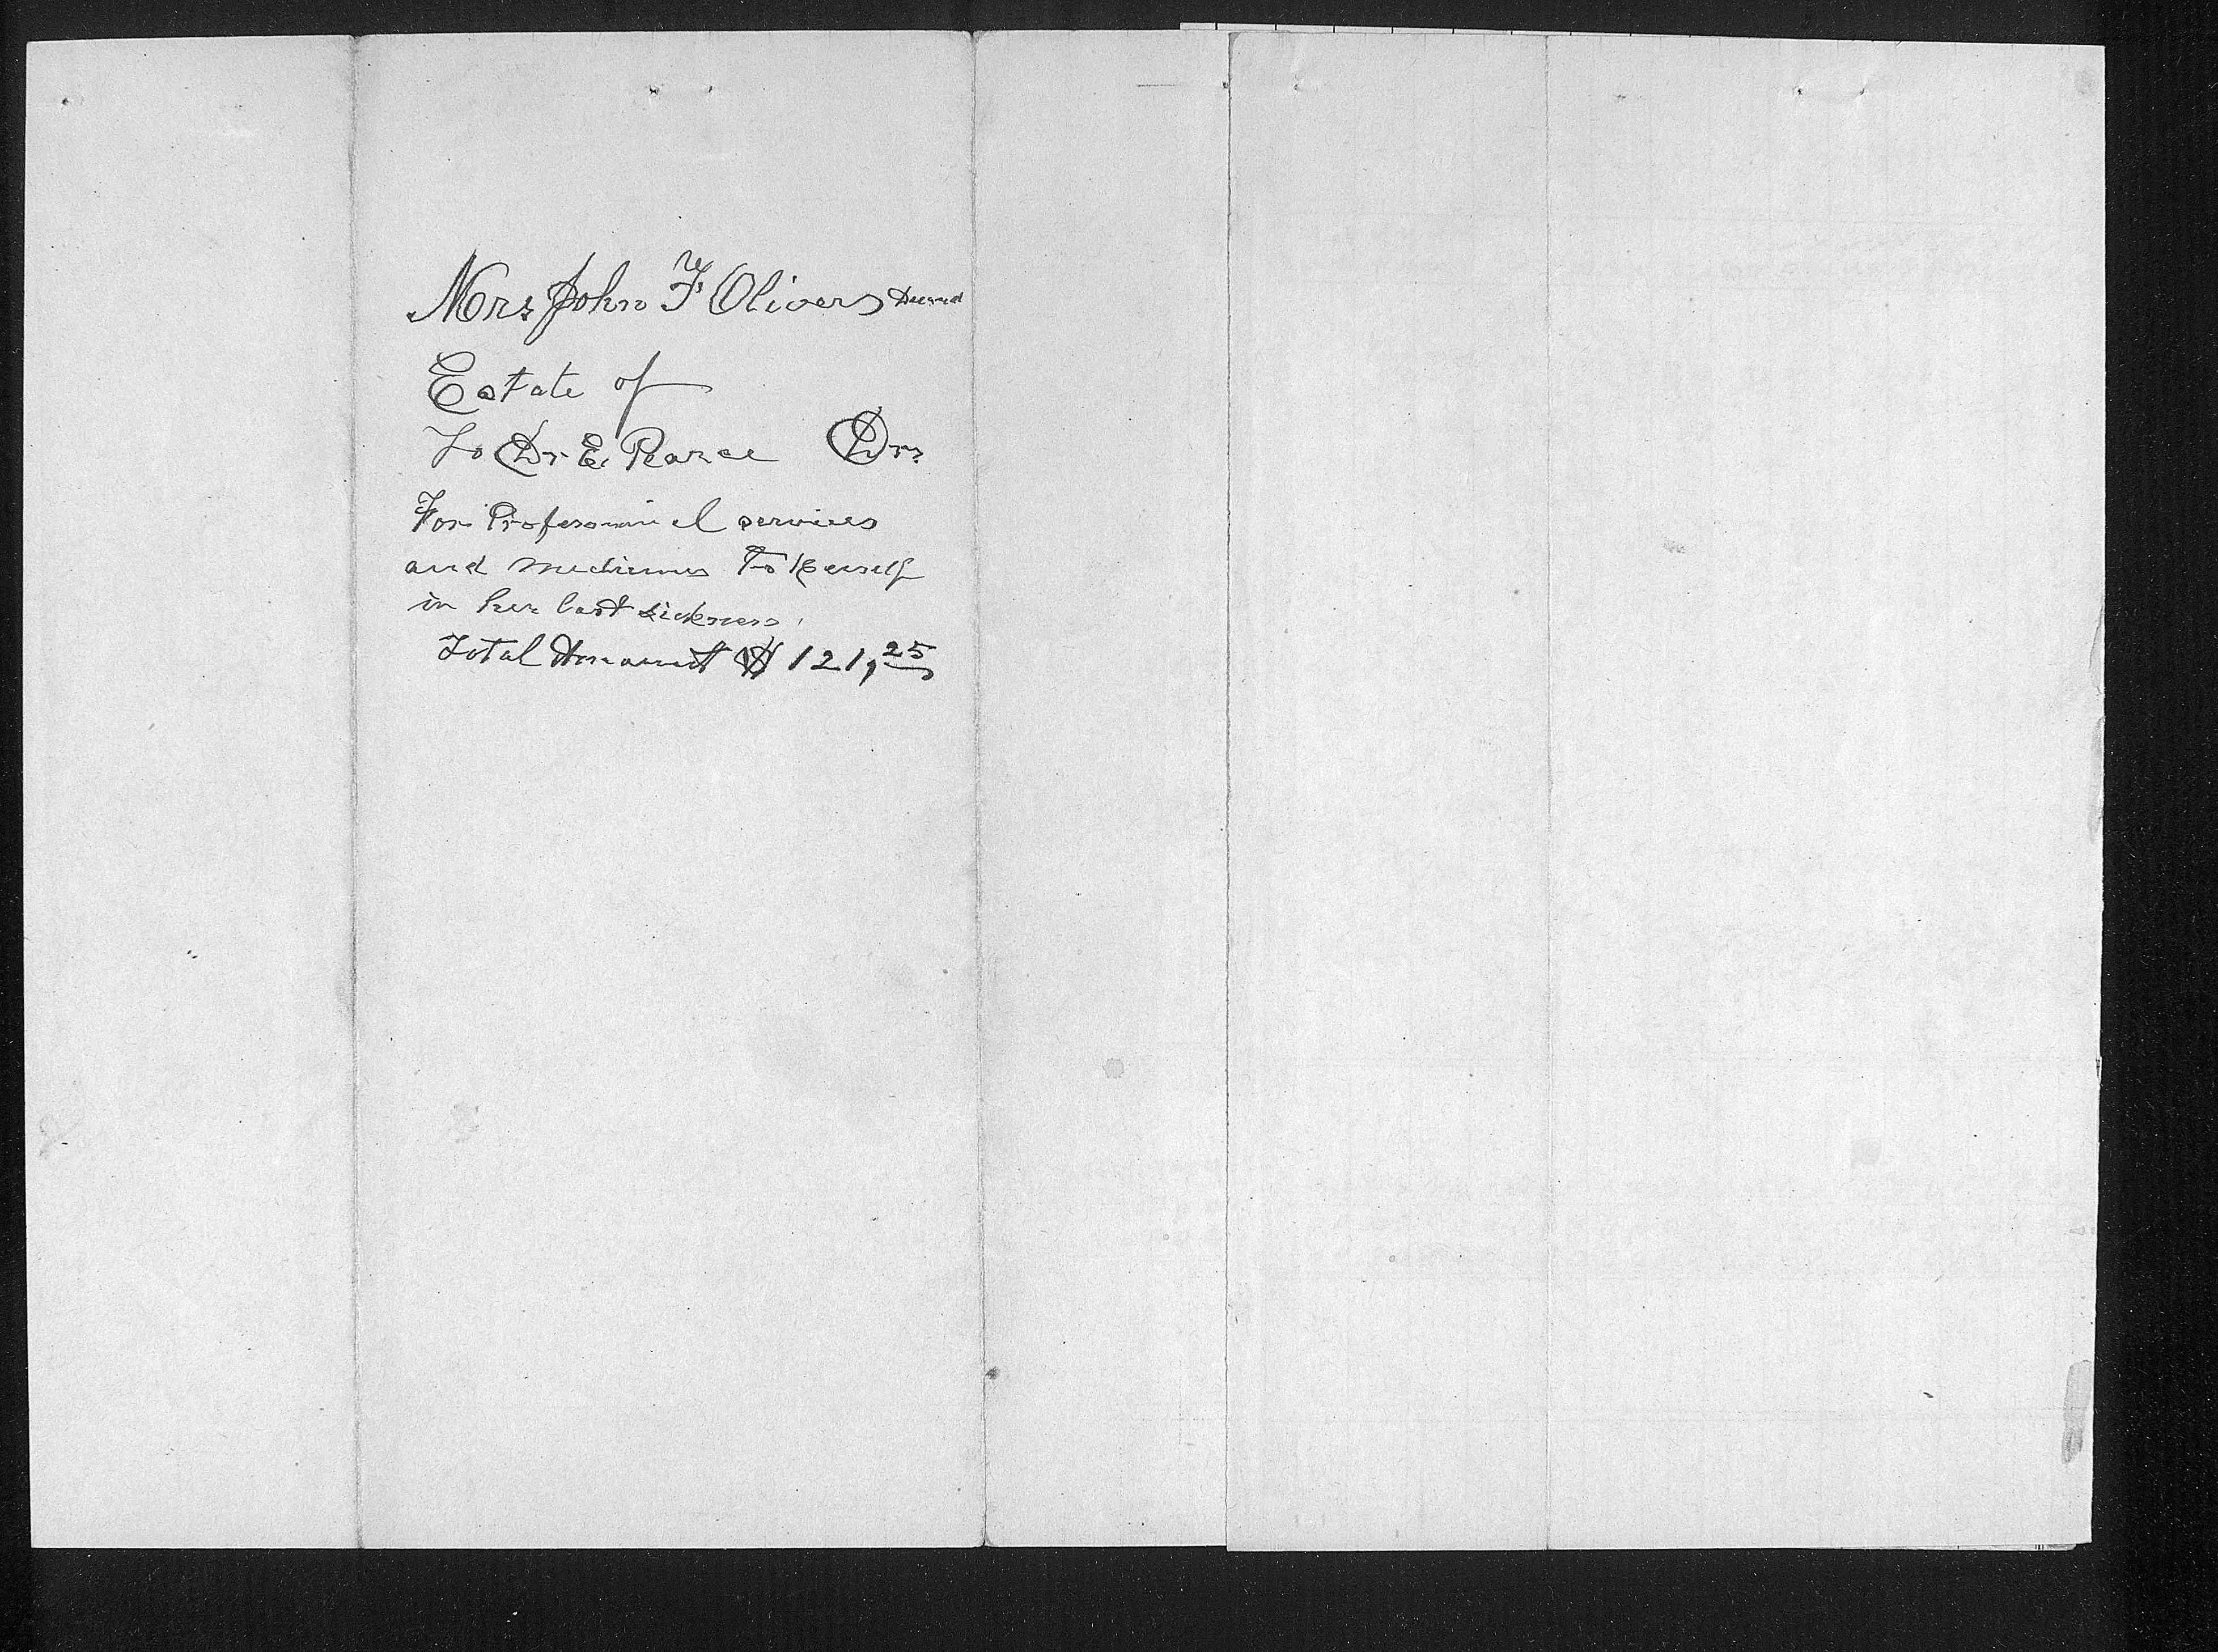 Mrs John F Olivers Deceased
Estate of
To Dr E. Pearce Dr.
For Professional services
and medicines To Herself
in her last sickness.
Total Amount $121,25